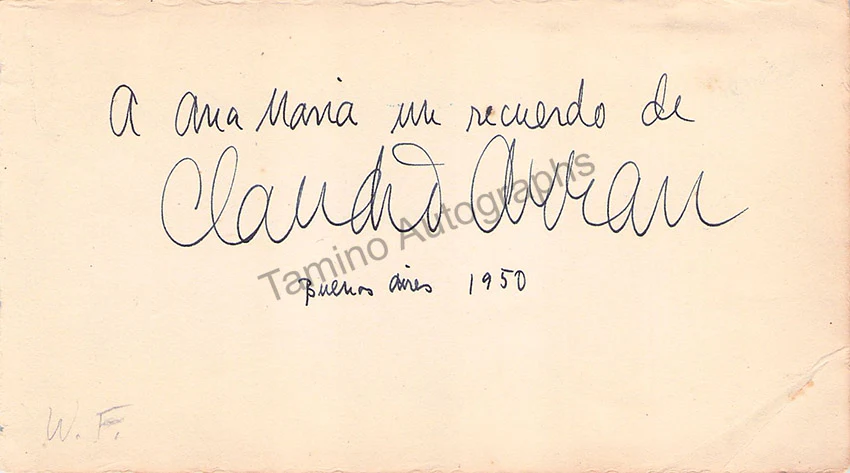 A Ana Maria un recuerdo de
Claudio Arrau
Tamino Autographs
Buenos Aires 1950
W. F.